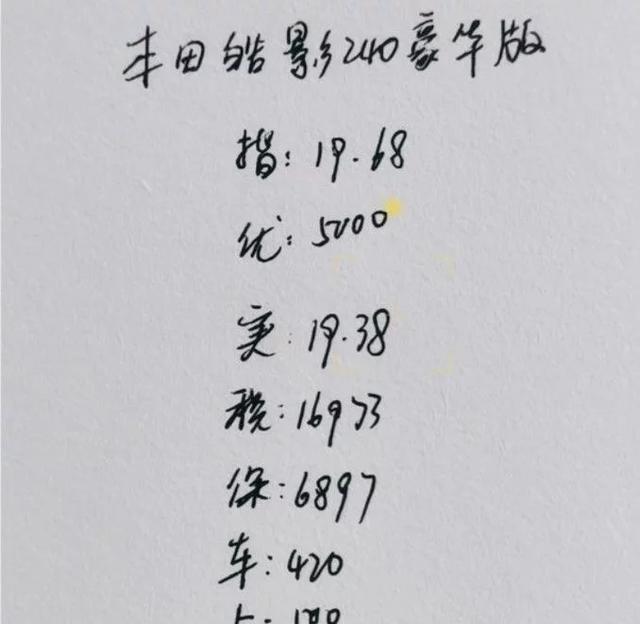 丰田皓影240豪华版
指：19.68
优：5000
实：19.38
税：16973
保：6897
车：420